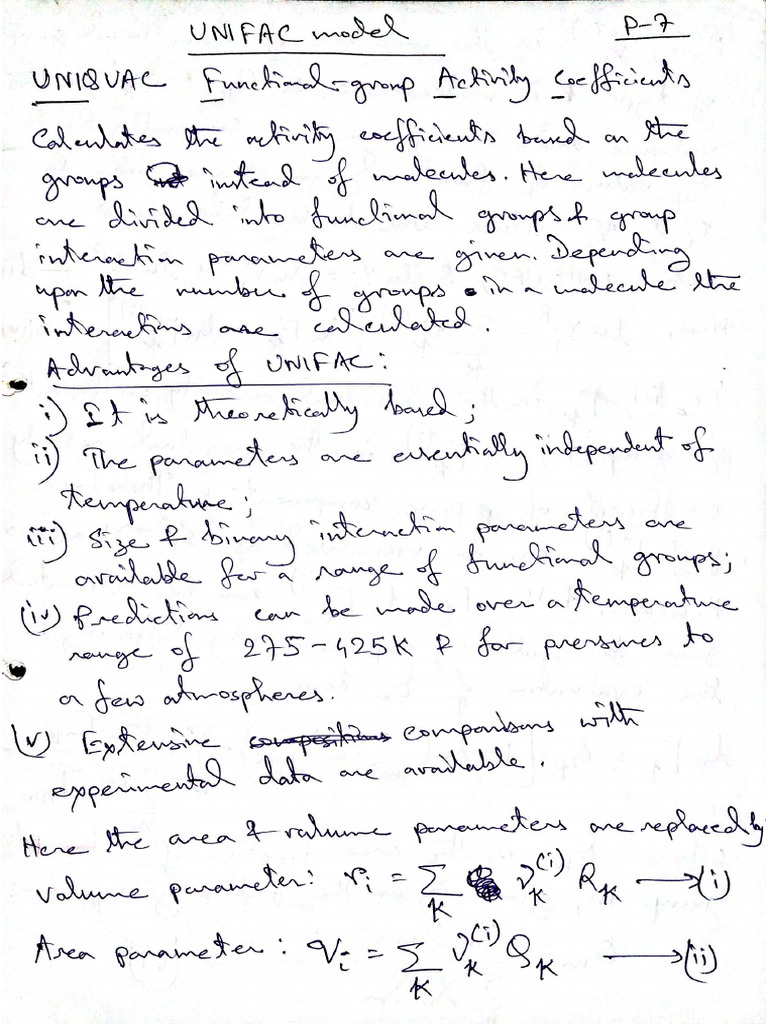 UNIFAC model P-7
UNIQUAC Functional-group Activity Coefficients
Calculates the activity coefficients based on the
groups instead of molecules. Here molecules
are divided into functional groups & group
interaction parameters are given. Depending
upon the number of groups in a molecule the
interactions are calculated.
Advantages of UNIFAC:
i) It is theoretically based;
ii) The parameters are essentially independent of
temperature;
iii) Size & binary interaction parameters are
available for a range of functional groups;
(iv) Predictions can be made over a temperature
range of 275-425K & for pressures to
a few atmospheres.
(v) Extensive comparisons with
experimental data are available.
Here the area & volume parameters are replaced by
Volume parameter: rᵢ = Σ_K ν_K^(i) R_K ⟶ (i)
Area parameter: qᵢ = Σ_K ν_K^(i) Q_K ⟶ (ii)